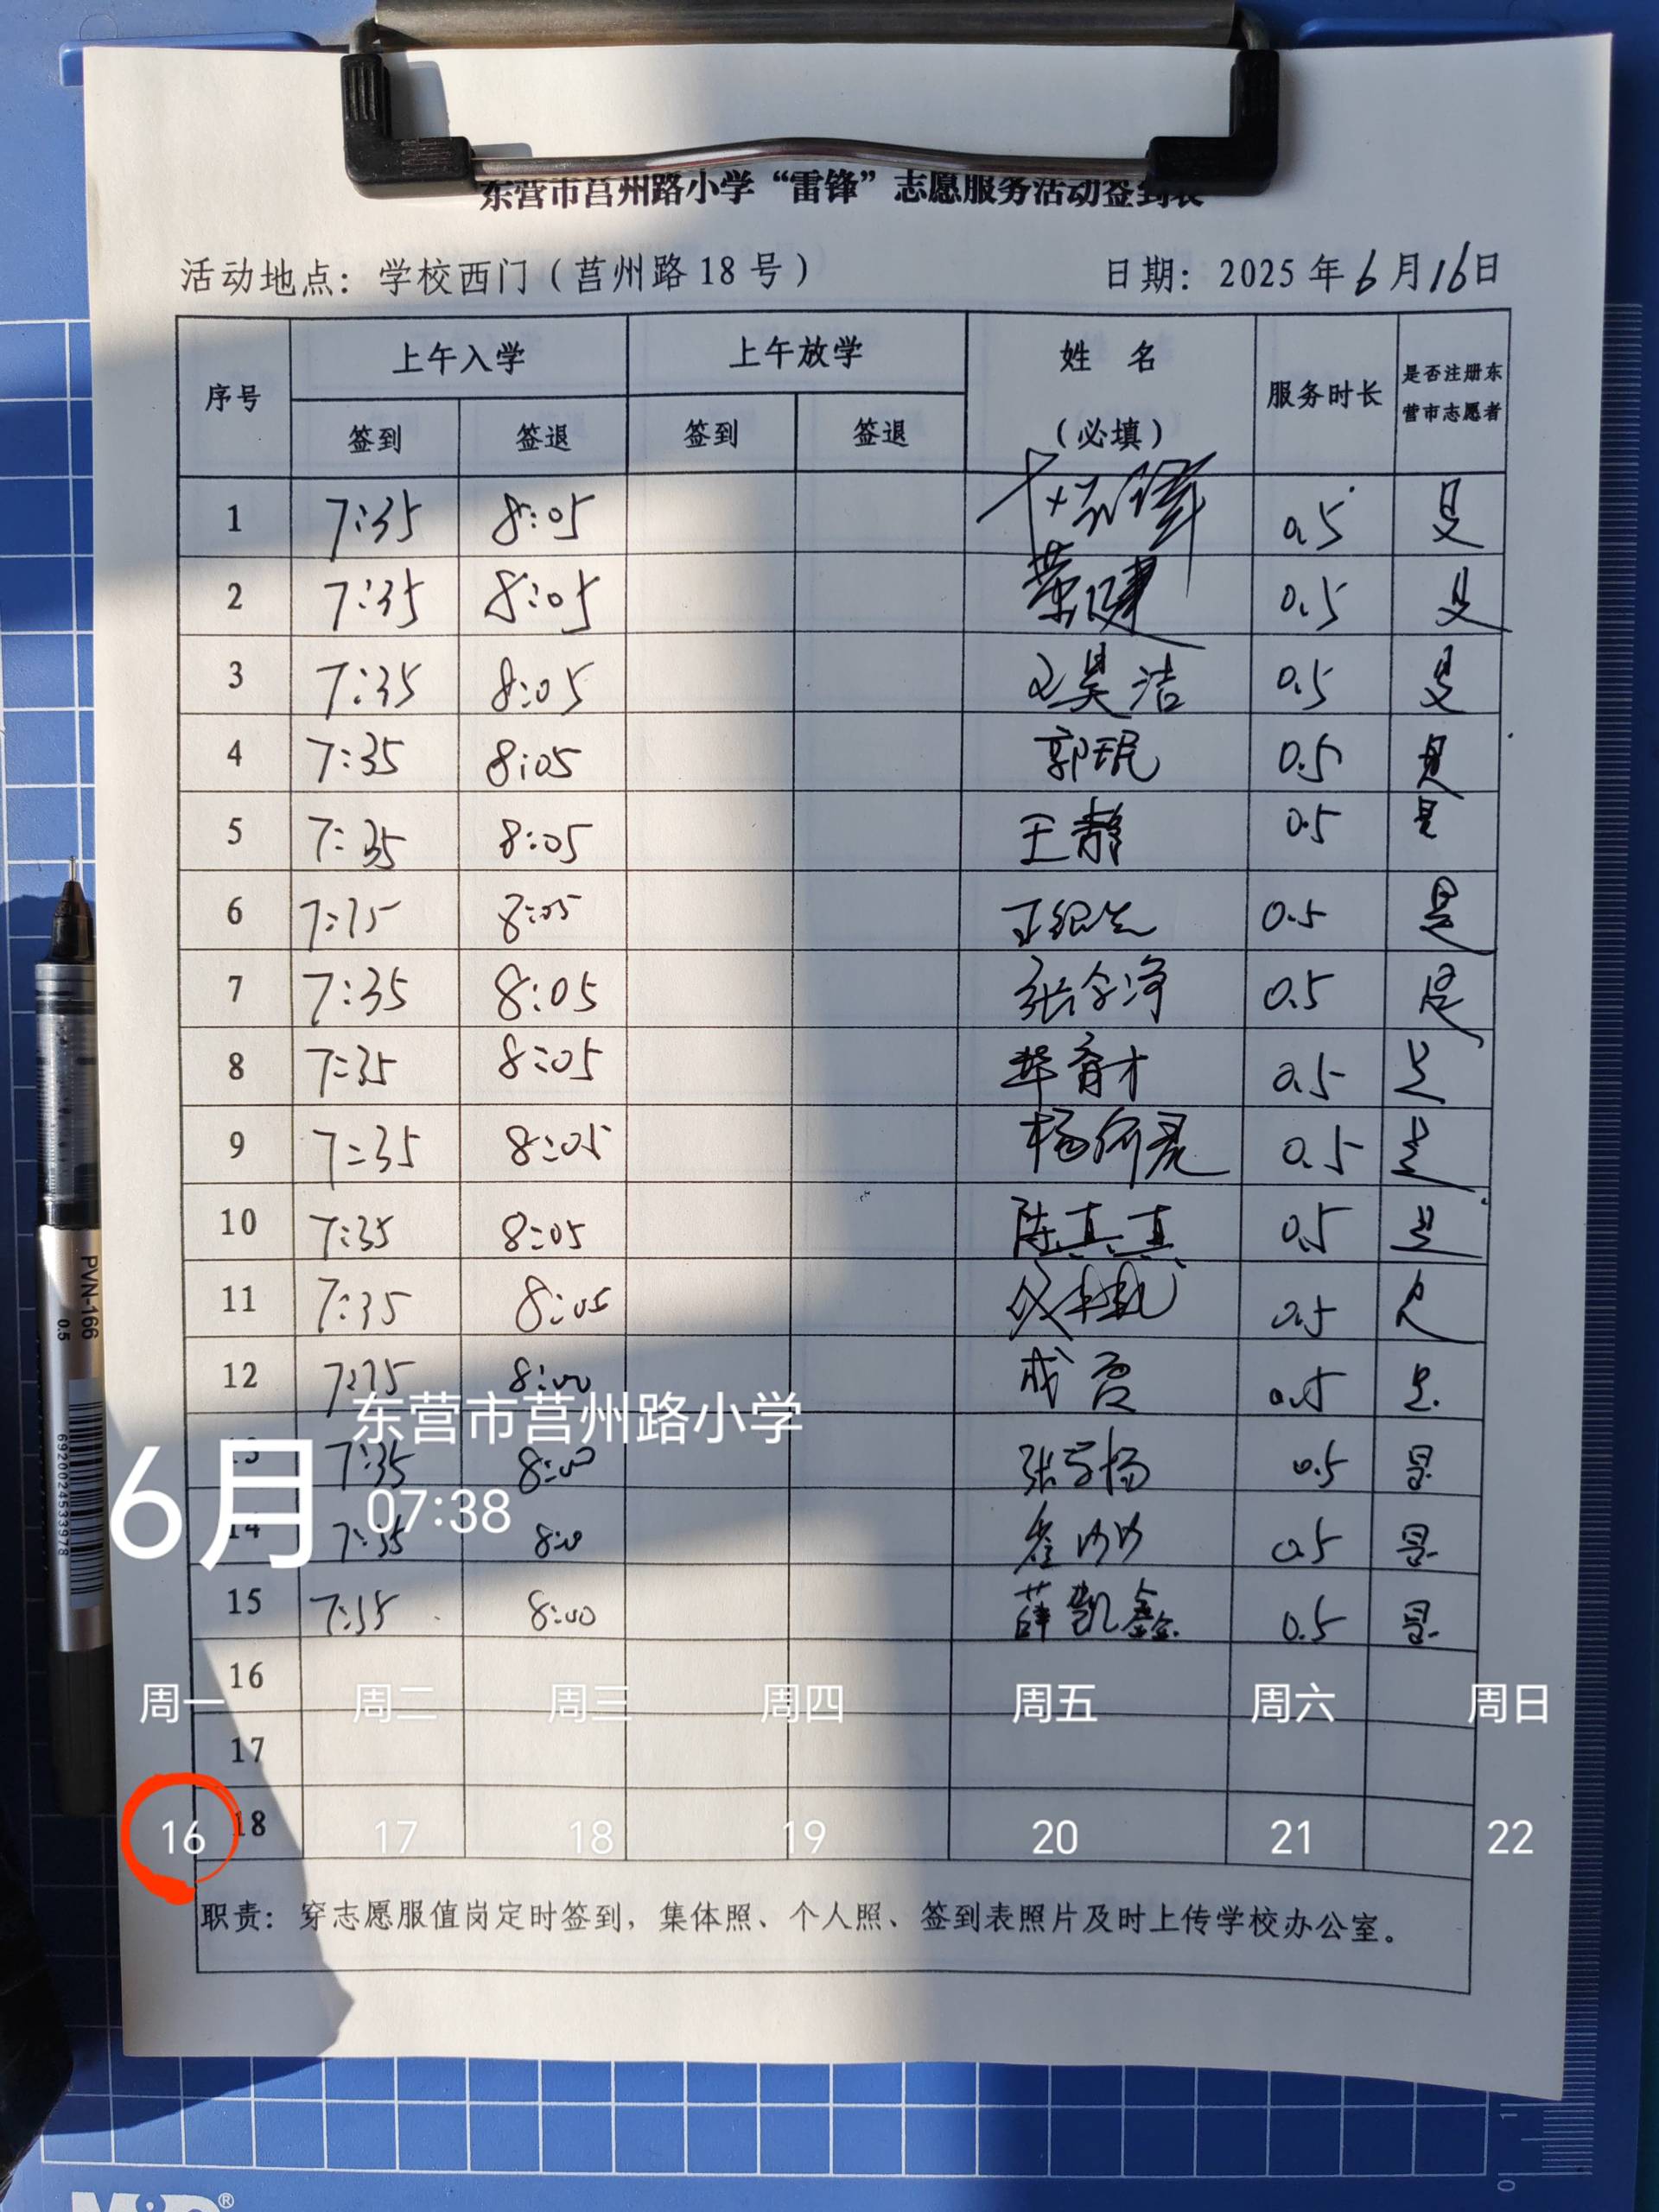 东营市莒州路小学“雷锋”志愿服务活动签到表
活动地点：学校西门（莒州路18号） 日期：2025年6月16日
序号 上午入学 上午放学 姓名（必填） 服务时长 是否注册东营市志愿者
签到 签退 签到 签退
1 7:35 8:05 0.5 是
2 7:35 8:05 0.5 是
3 7:35 8:05 0.5 是
4 7:35 8:05 郭珉 0.5 是
5 7:35 8:05 王静 0.5 是
6 7:35 8:05 0.5 是
7 7:35 8:05 0.5 是
8 7:35 8:05 华育才 0.5 是
9 7:35 8:05 0.5 是
10 7:35 8:05 陈真真 0.5 是
11 7:35 8:05 0.5 是
12 7:35 8:00 0.5 是
东营市莒州路小学
13 7:35 8:00 0.5 是
6月 07:38
14 7:35 8:0 0.5 是
15 7:35 8:00 薛凯鑫 0.5 是
16
周一 周二 周三 周四 周五 周六 周日
17
18
16 17 18 19 20 21 22
职责：穿志愿服值岗定时签到，集体照、个人照、签到表照片及时上传学校办公室。
PVN-166
0.5
6920024533978